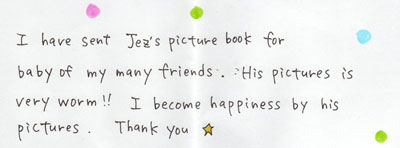 I have sent Jez's picture book for
baby of my many friends. His pictures is
very worm!! I become happiness by his
pictures. Thank you ☆